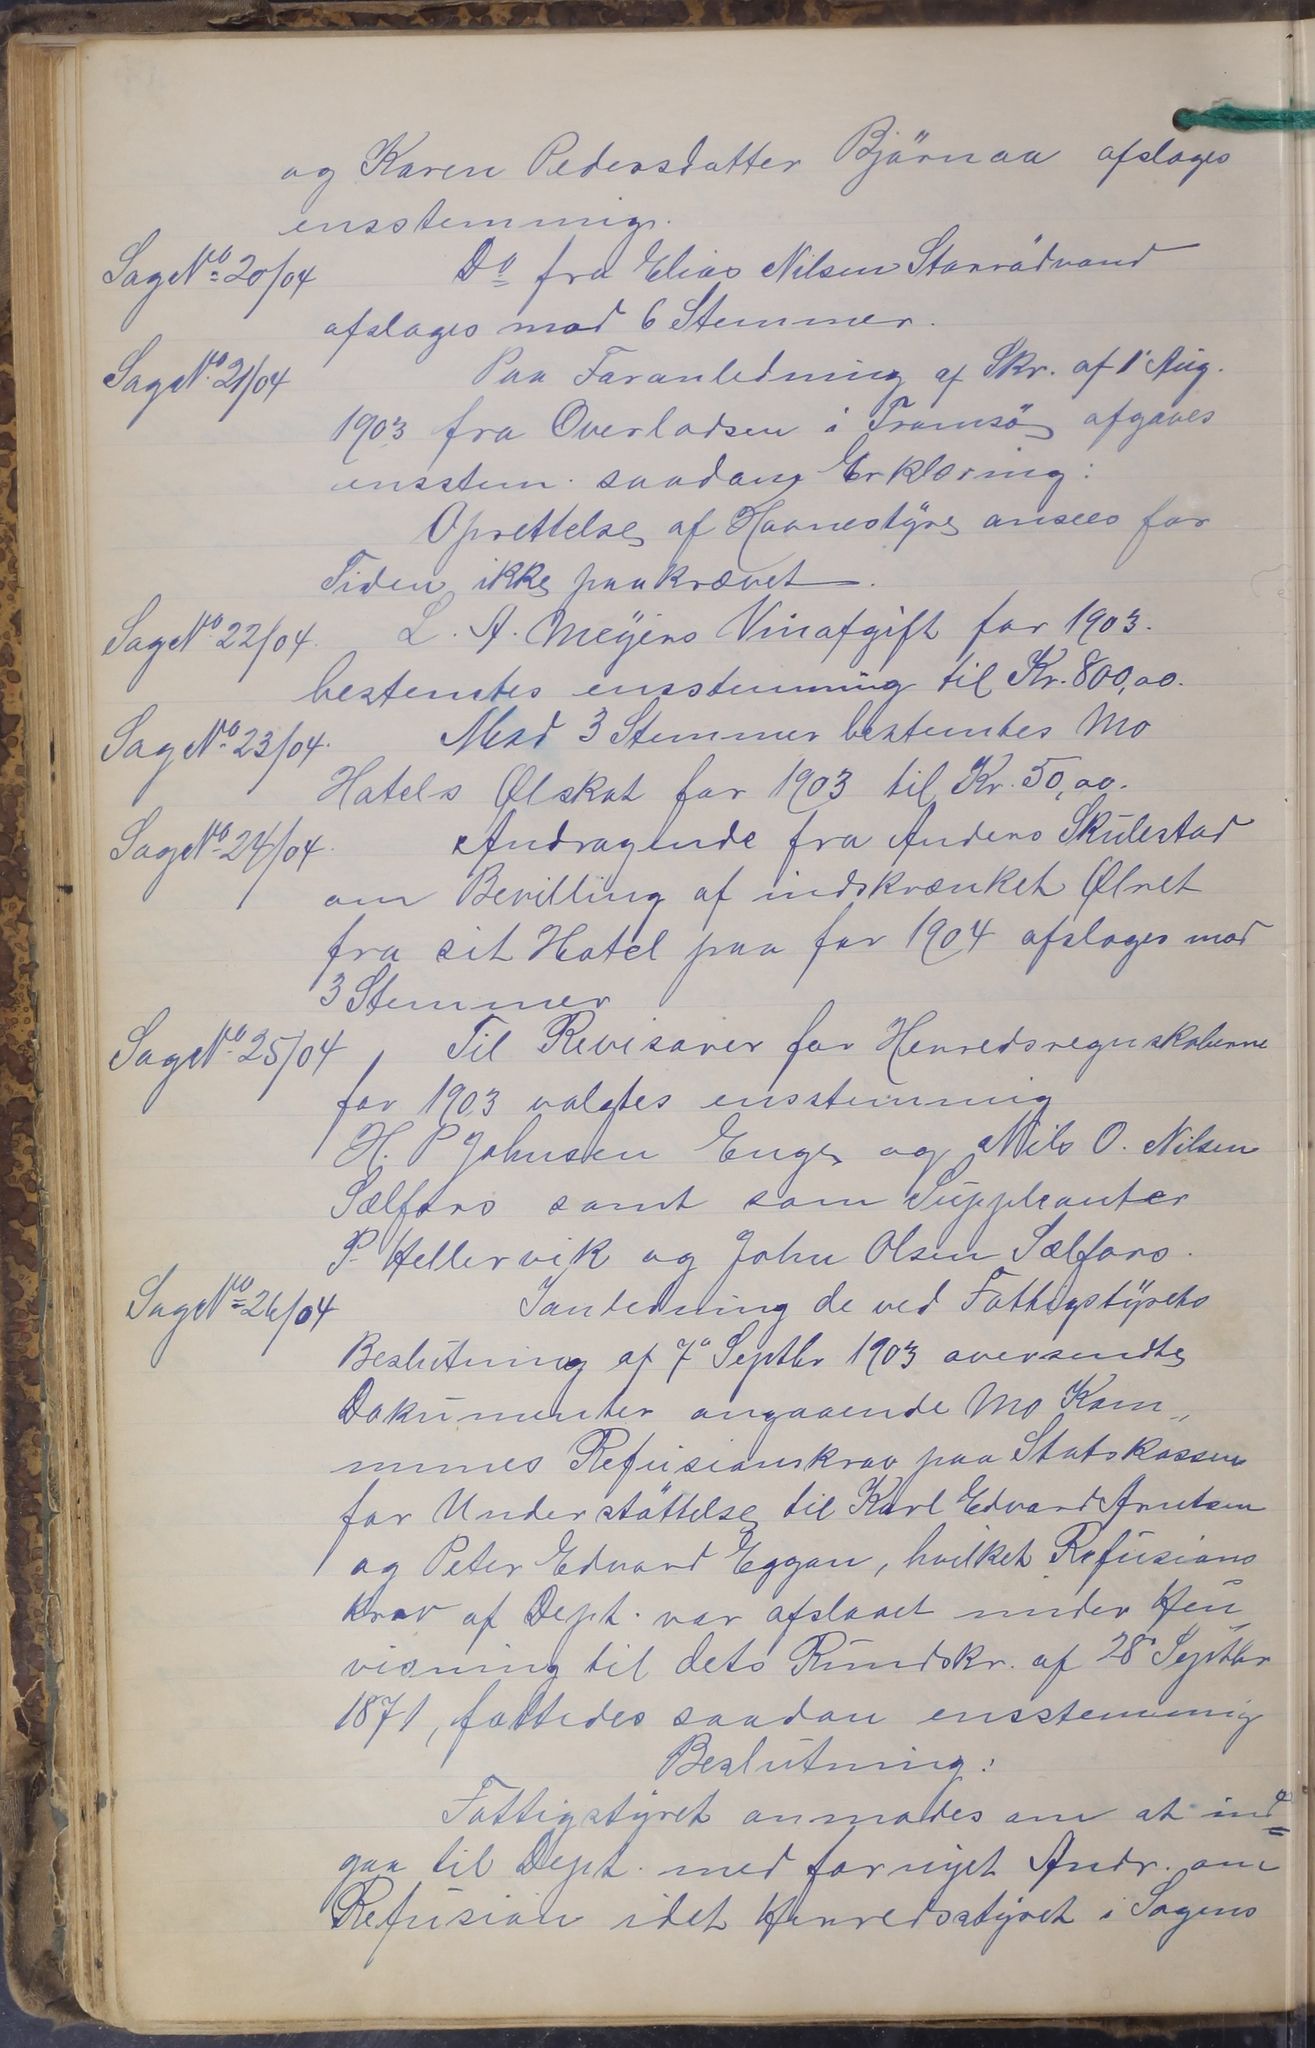 og Karen Pedersdatter Bjørnaa afslages
ensstemmig.
Sag No 20/04 Do fra Elias Nilsen Storrødvand
afslages mod 6 Stemmer.
Sag No 21/04 Paa Foranledning af Skr. af 1' Aug.
1903 fra Overlodsen i Tromsø afgaves
ensstem. saadan Erklæring:
Oprettelse af Havnestyre ansees for
Tiden ikke paakrævet.
Sag No 22/04. L. A. Meyers Vinafgift for 1903.
bestemtes ensstemmig til Kr. 800,00.
Sag No 23/04. Mod 3 Stemmer bestemtes Mo
Hotels Ølskat for 1903 til Kr. 50,00.
Sag No 24/04. Andragende fra Anders Skulestad
om Bevilling af indskrænket Ølret
fra sit Hotel paa for 1904 afslages mod
3 Stemmer
Sag No 25/04 Til Revisorer for Herredsregnskaberne
for 1903 valgtes ensstemmig
H. P Johnsen Enge og Nils O. Nilsen
Sælfors samt som Suppleanter
P. Hellervik og John Olsen Sælfors.
Sag No 26/04 I anledning de ved Fattigstyrets
Beslutning af 7' Septbr 1903 oversendte
Dokumenter angaaende Mo Kom„
munes Refusionskrav paa Statskassen
for Understøttelse til Karl Edvard Arntsen
og Peter Edvard Eggan, hvilket Refusions
krav af Dept. var afslaaet under Hen„
visning til dets Rundskr. af 28' Septbr
1871, fattedes saadan ensstemmig
Beslutning:
Fattigstyret anmodes om at ind=
gaa til Dept. med fornyet Andr. om
Refusion idet Herredsstyret i Sagens